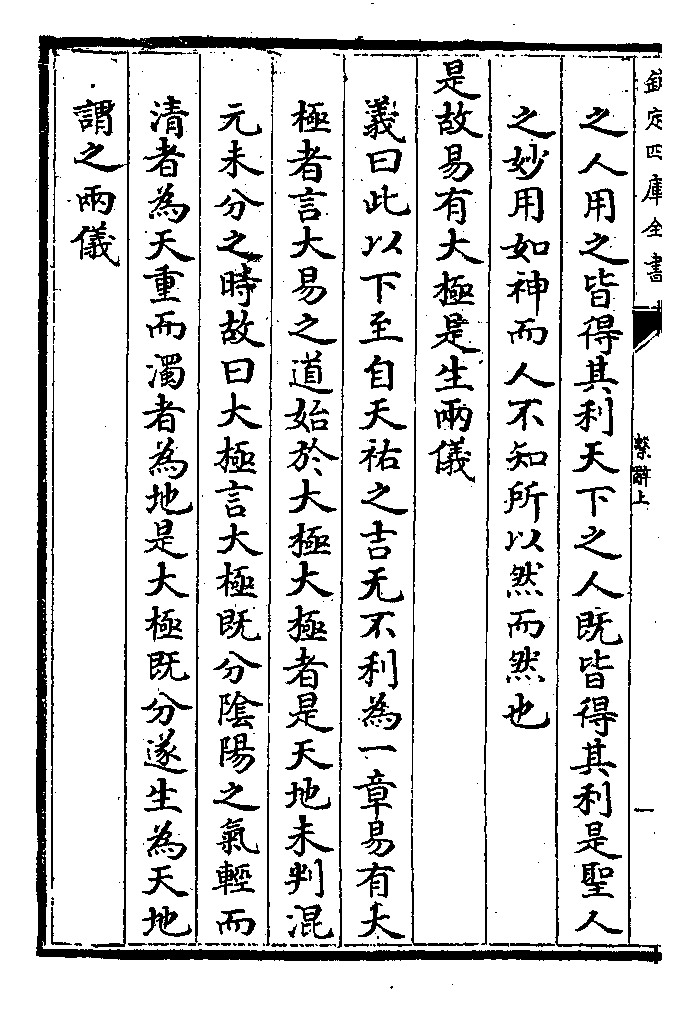 欽定四庫全書
繫辭上
之人用之皆得其利天下之人既皆得其利是聖人
之妙用如神而人不知所以然而然也
是故易有大極是生兩儀
義曰此以下至自天祐之吉无不利為一章易有大
極者言大易之道始於大極大極者是天地未判混
元未分之時故曰大極言大極既分陰陽之氣輕而
清者為天重而濁者為地是大極既分遂生為天地
謂之兩儀